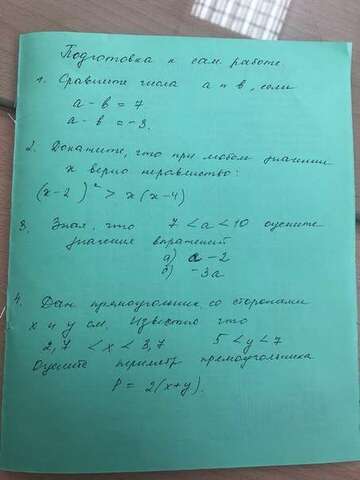 Подготовка к сам. работе.
1. Сравните числа a и b, если
a - b = 7
a - b = -3.
2. Докажите, что при любом значении
x верно неравенство:
(x-2)² > x(x-4)
3. Зная, что 7 < a < 10 оцените
значения выражений
а) a - 2
б) -3a
4. Дан прямоугольник со сторонами
x и y см. Известно что
2,7 < x < 3,7 5 < y < 7
Оцените периметр прямоугольника
P = 2(x+y).